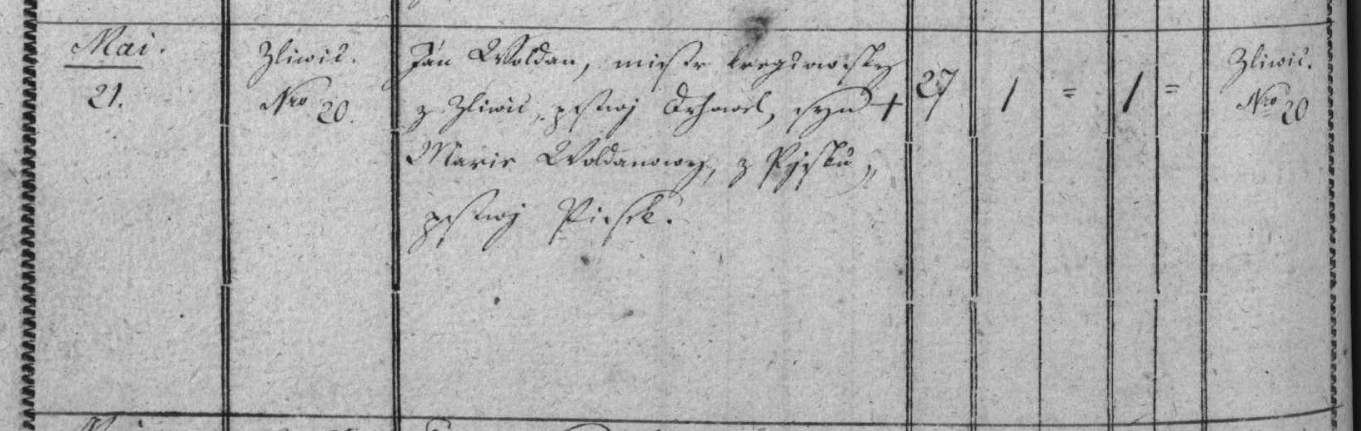 Mai.
21.
Zliwic.
Nro 20.
Ján Woldan, mistr kregčowský
z Zliwic, pstwj Drhowel, syn +
Marie Woldanowy, z Pjsku,
pstwj Pisek.
27 1 = 1 =
Zliwic.
Nro 20